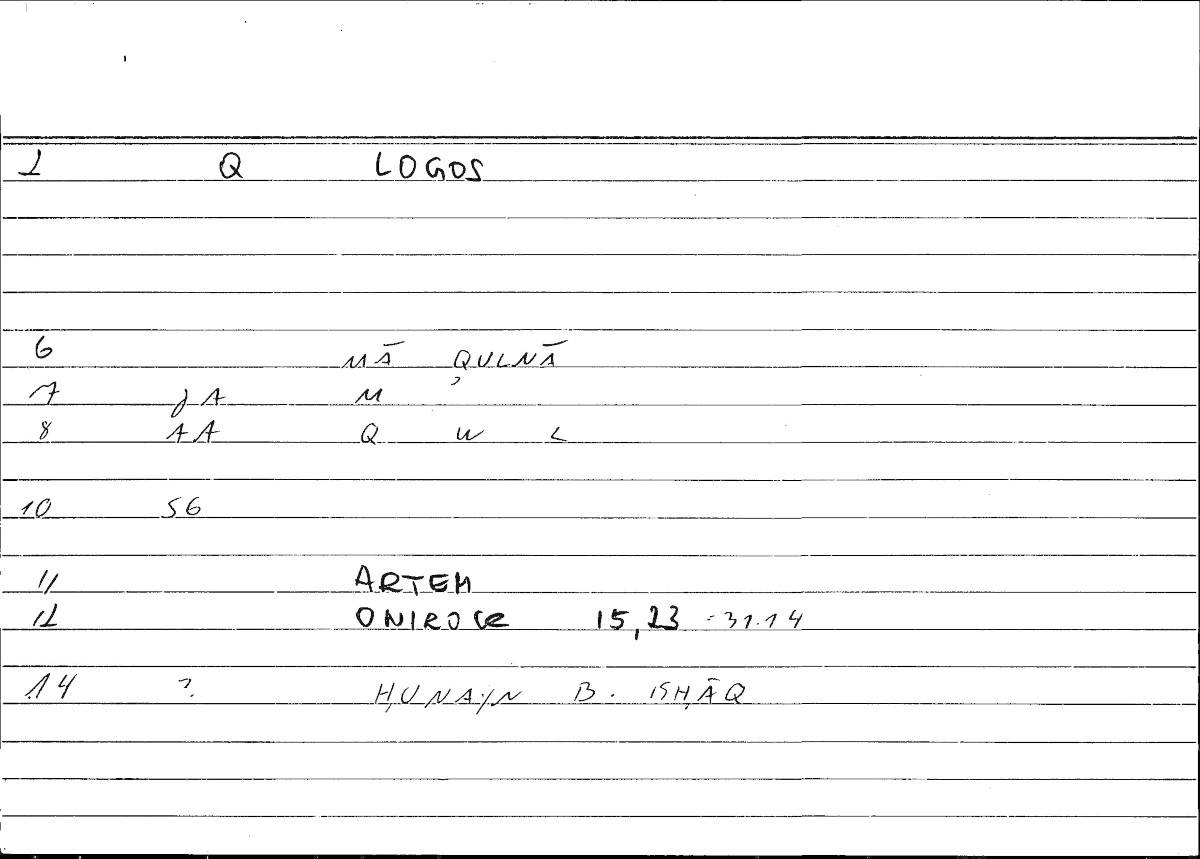 1 Q LOGOS
6 MĀ QULNĀ
7 JA M
8 AA Q W L
10 56
11 ARTEM
12 ONIROCR 15,23 = 31.14
14 ? ḤUNAYN B. ISḤĀQ